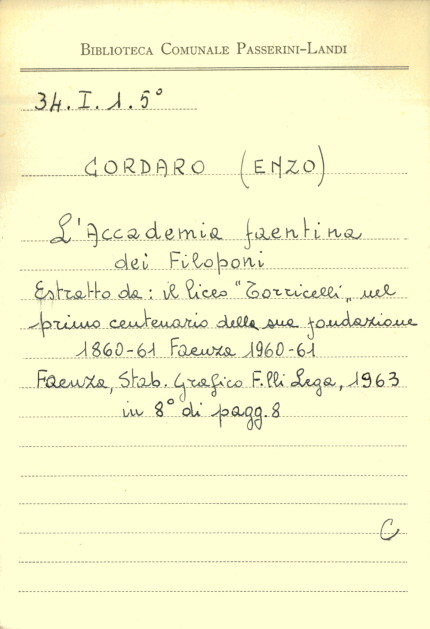 BIBLIOTECA COMUNALE PASSERINI-LANDI
34.I.1.5°
CORDARO (ENZO)
L'Accademia faentina
dei Filoponi
Estratto da: il liceo "Torricelli„ nel
primo centenario della sua fondazione
1860-61 Faenza 1960-61
Faenza, Stab. Grafico F.lli Lega, 1963
in 8° di pagg. 8
C